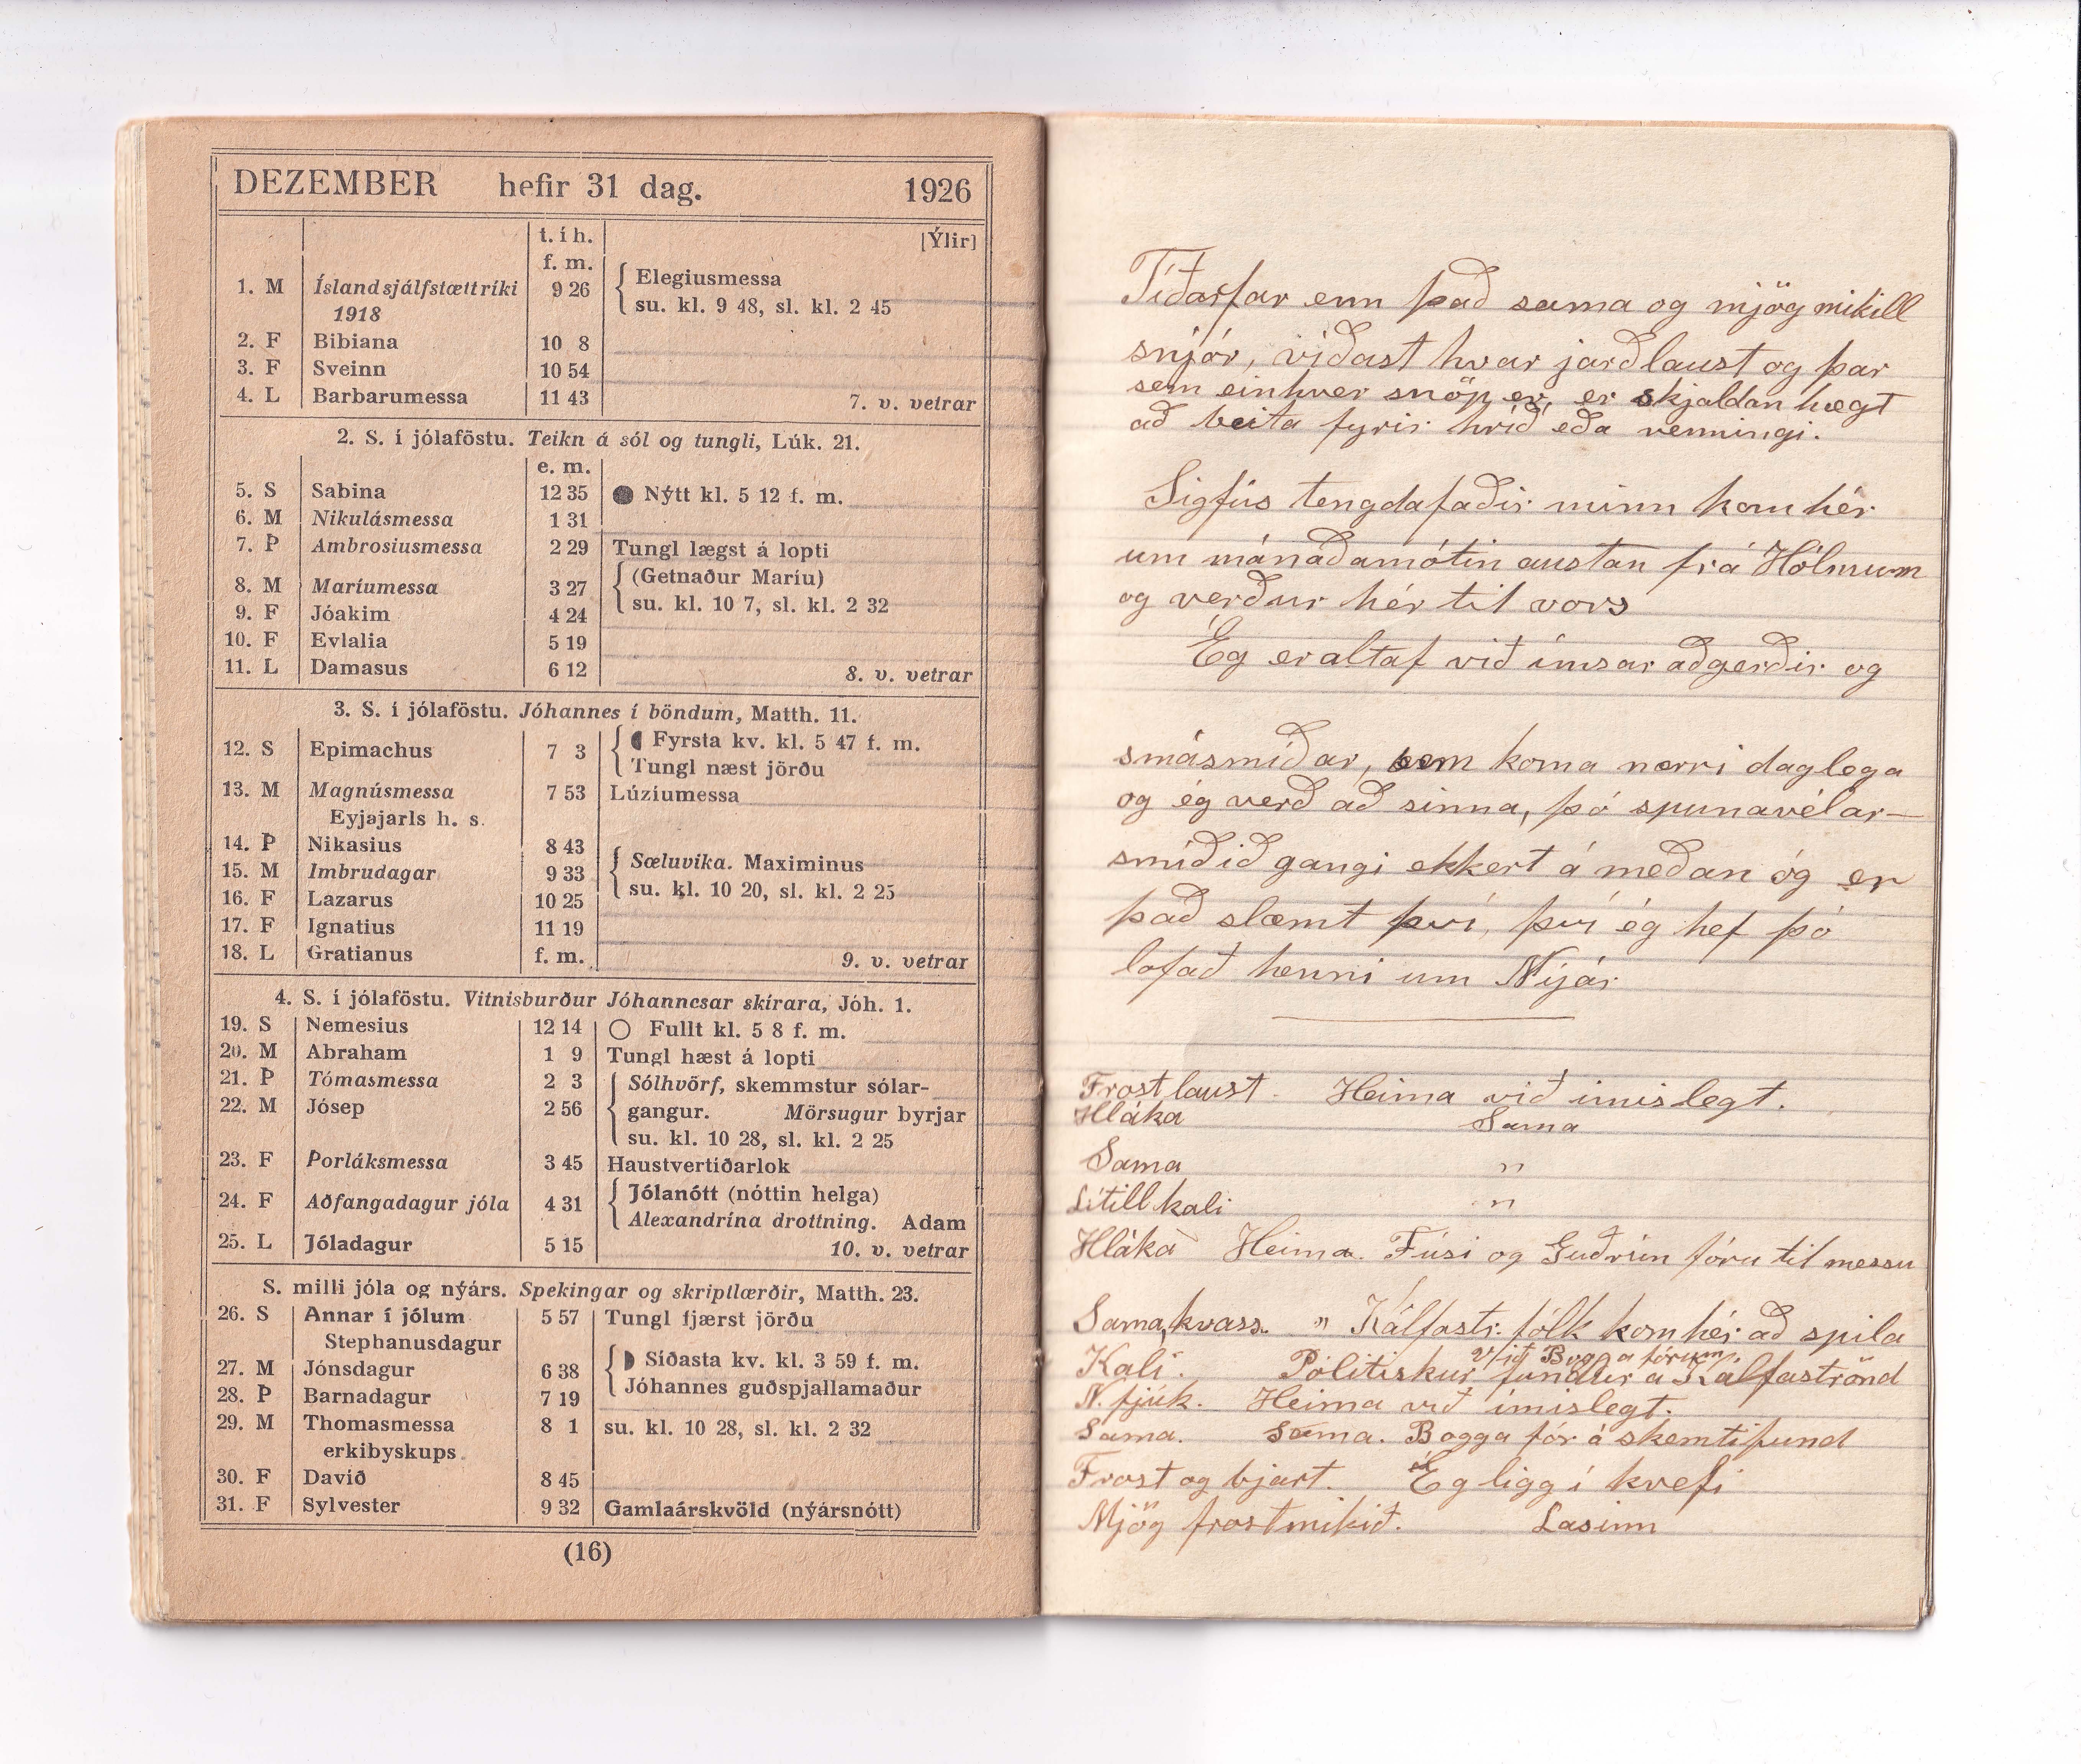 DEZEMBER hefir 31 dag. 1926
t. í h. [Ýlir]
f. m.
1. M Íslandsjálfstættríki 9 26 Elegiusmessa
1918 su. kl. 9 48, sl. kl. 2 45
2. F Bibiana 10 8
3. F Sveinn 10 54
4. L Barbarumessa 11 43 7. v. vetrar
2. S. í jólaföstu. Teikn á sól og tungli, Lúk. 21.
e. m.
5. S Sabina 12 35 Nýtt kl. 5 12 f. m.
6. M Nikulásmessa 1 31
7. Þ Ambrosiusmessa 2 29 Tungl lægst á lopti
8. M Maríumessa 3 27 (Getnaður Maríu)
9. F Jóakim 4 24 su. kl. 10 7, sl. kl. 2 32
10. F Evlalia 5 19
11. L Damasus 6 12 8. v. vetrar
3. S. í jólaföstu. Jóhannes í böndum, Matth. 11.
12. S Epimachus 7 3 Fyrsta kv. kl. 5 47 f. m.
Tungl næst jörðu
13. M Magnúsmessa 7 53 Lúziumessa
Eyjajarls h. s.
14. Þ Nikasius 8 43
15. M Imbrudagar 9 33 Sæluvika. Maximinus
16. F Lazarus 10 25 su. kl. 10 20, sl. kl. 2 25
17. F Ignatius 11 19
18. L Gratianus f. m. 9. v. vetrar
4. S. í jólaföstu. Vitnisburður Jóhannesar skírara, Jóh. 1.
19. S Nemesius 12 14 Fullt kl. 5 8 f. m.
20. M Abraham 1 9 Tungl hæst á lopti
21. Þ Tómasmessa 2 3 Sólhvörf, skemmstur sólar-
22. M Jósep 2 56 gangur. Mörsugur byrjar
su. kl. 10 28, sl. kl. 2 25
23. F Þorláksmessa 3 45 Haustvertíðarlok
24. F Aðfangadagur jóla 4 31 Jólanótt (nóttin helga)
Alexandrína drottning. Adam
25. L Jóladagur 5 15 10. v. vetrar
S. milli jóla og nýárs. Spekingar og skriptlærðir, Matth. 23.
26. S Annar í jólum 5 57 Tungl fjærst jörðu
Stephanusdagur
27. M Jónsdagur 6 38 Síðasta kv. kl. 3 59 f. m.
28. Þ Barnadagur 7 19 Jóhannes guðspjallamaður
29. M Thomasmessa 8 1 su. kl. 10 28, sl. kl. 2 32
erkibyskups
30. F Davíð 8 45
31. F Sylvester 9 32 Gamlaárskvöld (nýársnótt)
(16)
Tíðarfar enn það sama og mjög mikill
snjór, víðast hvar jarðlaust og þar
sem einhver snöp er, er skjaldan hægt
að beita fyrir hríð eða renningi.
Sigfús tengdafaðir minn kom hér
um mánaðamótin austan frá Hólmum
og verður hér til vors
Ég er altaf við ímsar aðgerðir og
smásmíðar, sem koma nærri daglega
og ég verð að sinna, þó spunavélar-
smíðið gangi ekkert á meðan óg er
það slæmt því, því ég hef þó
lofað henni um Nýár
Frostlaust. Heima við ímislegt.
Hláka Sama
Sama "
Lítill kali "
Hláka Heima. Fúsi og Guðrún fóru til messu
Sama, kvass. " Kálfastr. fólk kom hér að spila
við Bogga fórum.
Kali. Pólitiskur fundur á Kálfaströnd
N. fjúk. Heima við ímislegt.
Sama. Sama. Bogga fór á skemtifund
Frost og bjart. Ég ligg í kvefi
Mjög frostmikið. Lasinn